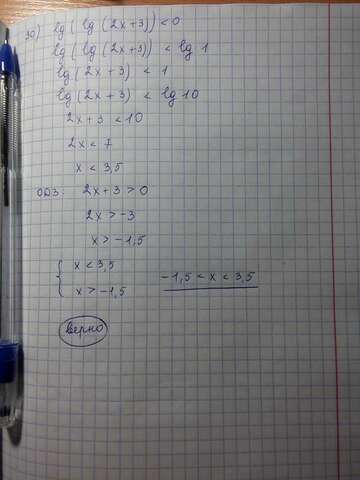 30) lg(lg(2x+3))<0
lg(lg(2x+3)) < lg 1
lg(2x+3) < 1
lg(2x+3) < lg 10
2x+3 <10
2x< 7
x < 3,5
ОДЗ: 2x+3 >0
2x >-3
x > -1,5
{ x < 3,5
x > -1,5 -1,5 < x < 3,5
верно